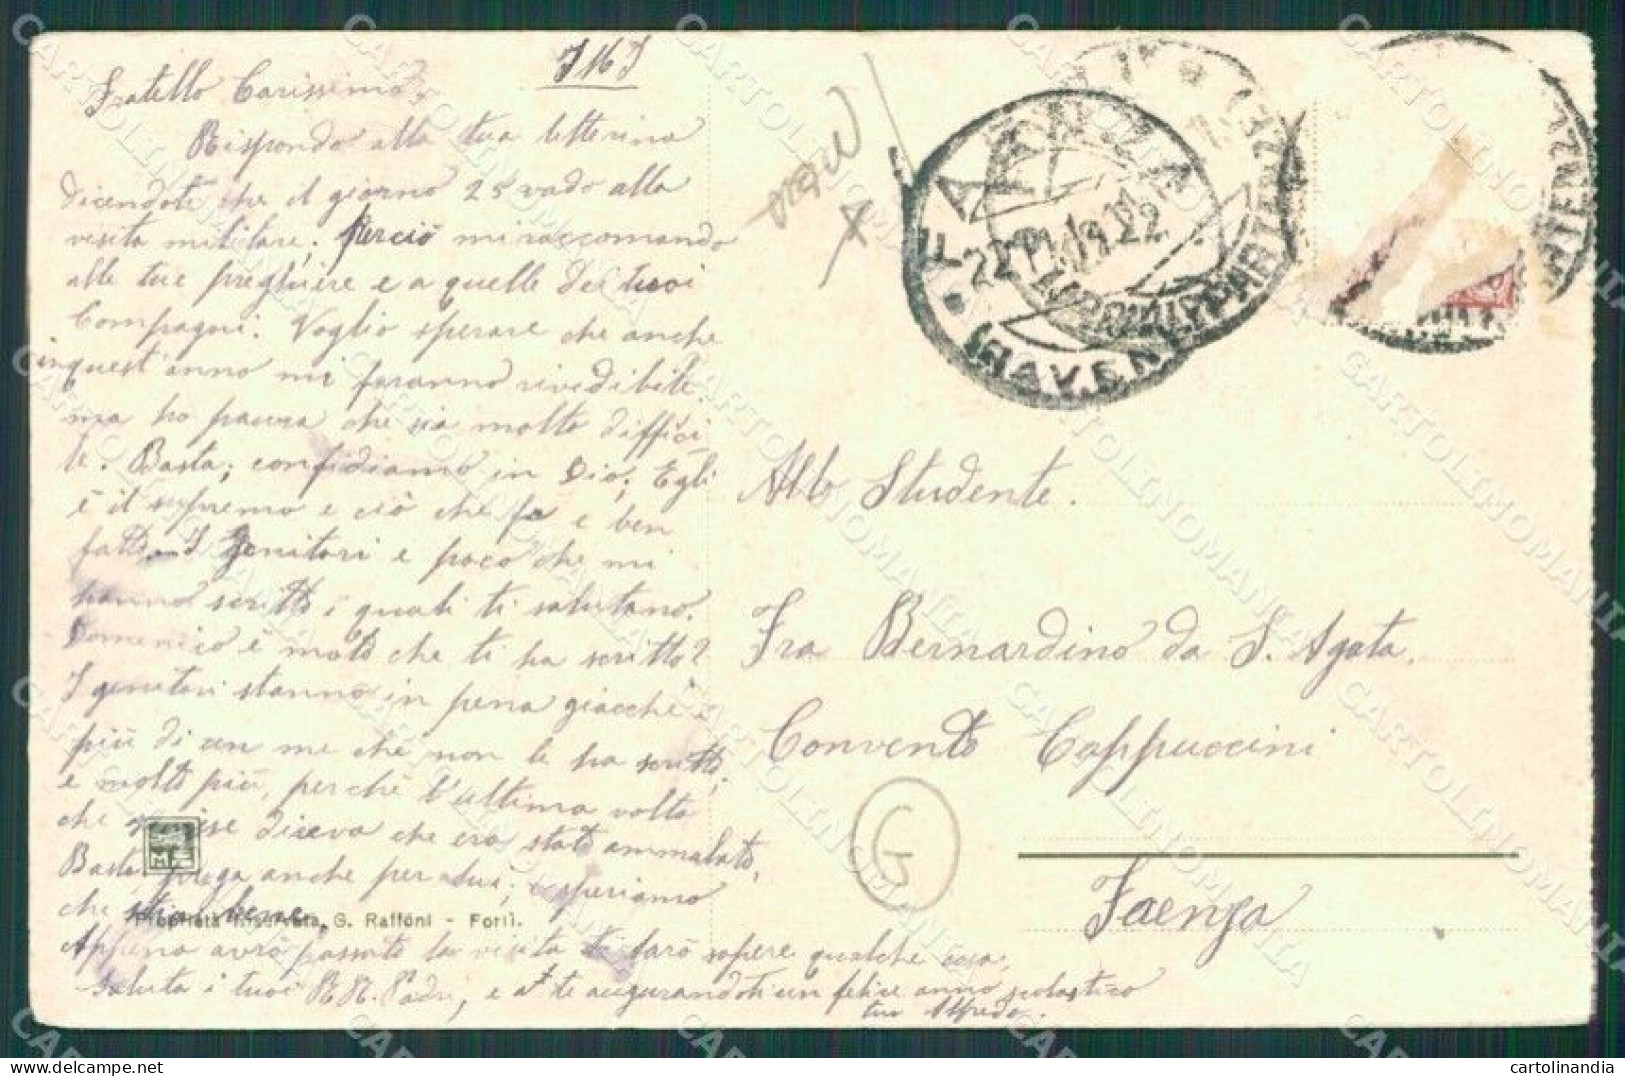 Fratello Carissimo,
Rispondo alla tua letterina
dicendoti che il giorno 25 vado alla
visita militare; perciò mi raccomando
alle tue preghiere e a quelle dei tuoi
Compagni. Voglio sperare che anche
inquest'anno mi faranno rividibile
ma ho paura che sia molto diffici
le. Basta; confidiamo in Dio; Egli
è il supremo e ciò che fa e ben
fatto. I Genitori e poco che mi
hanno scritto i quali ti salutano.
Domenico è molto che ti ha scritto?
I genitori stanno in pena giacchè è
più di un me che non le ha scritto,
e molto più, perchè l'ultima volta
che scrisse diceva che era stato ammalato,
Basta, prega anche per lui; e speriamo
che stia bene.
Appena avrò passato la visita ti farò sapere qualche cosa,
Saluta i tuoi RR. Padri, e a te augurandoti un felice anno scolastico
tuo Alfredo.
Proprietà Riservata, G. Raffoni - Forlì.
FAENZA
(RAVENNA)
22
Allo Studente.
Fra Bernardino da S. Agata.
Convento Cappuccini
Faenza
G
CARTOLINOMANIA
cartolinandia